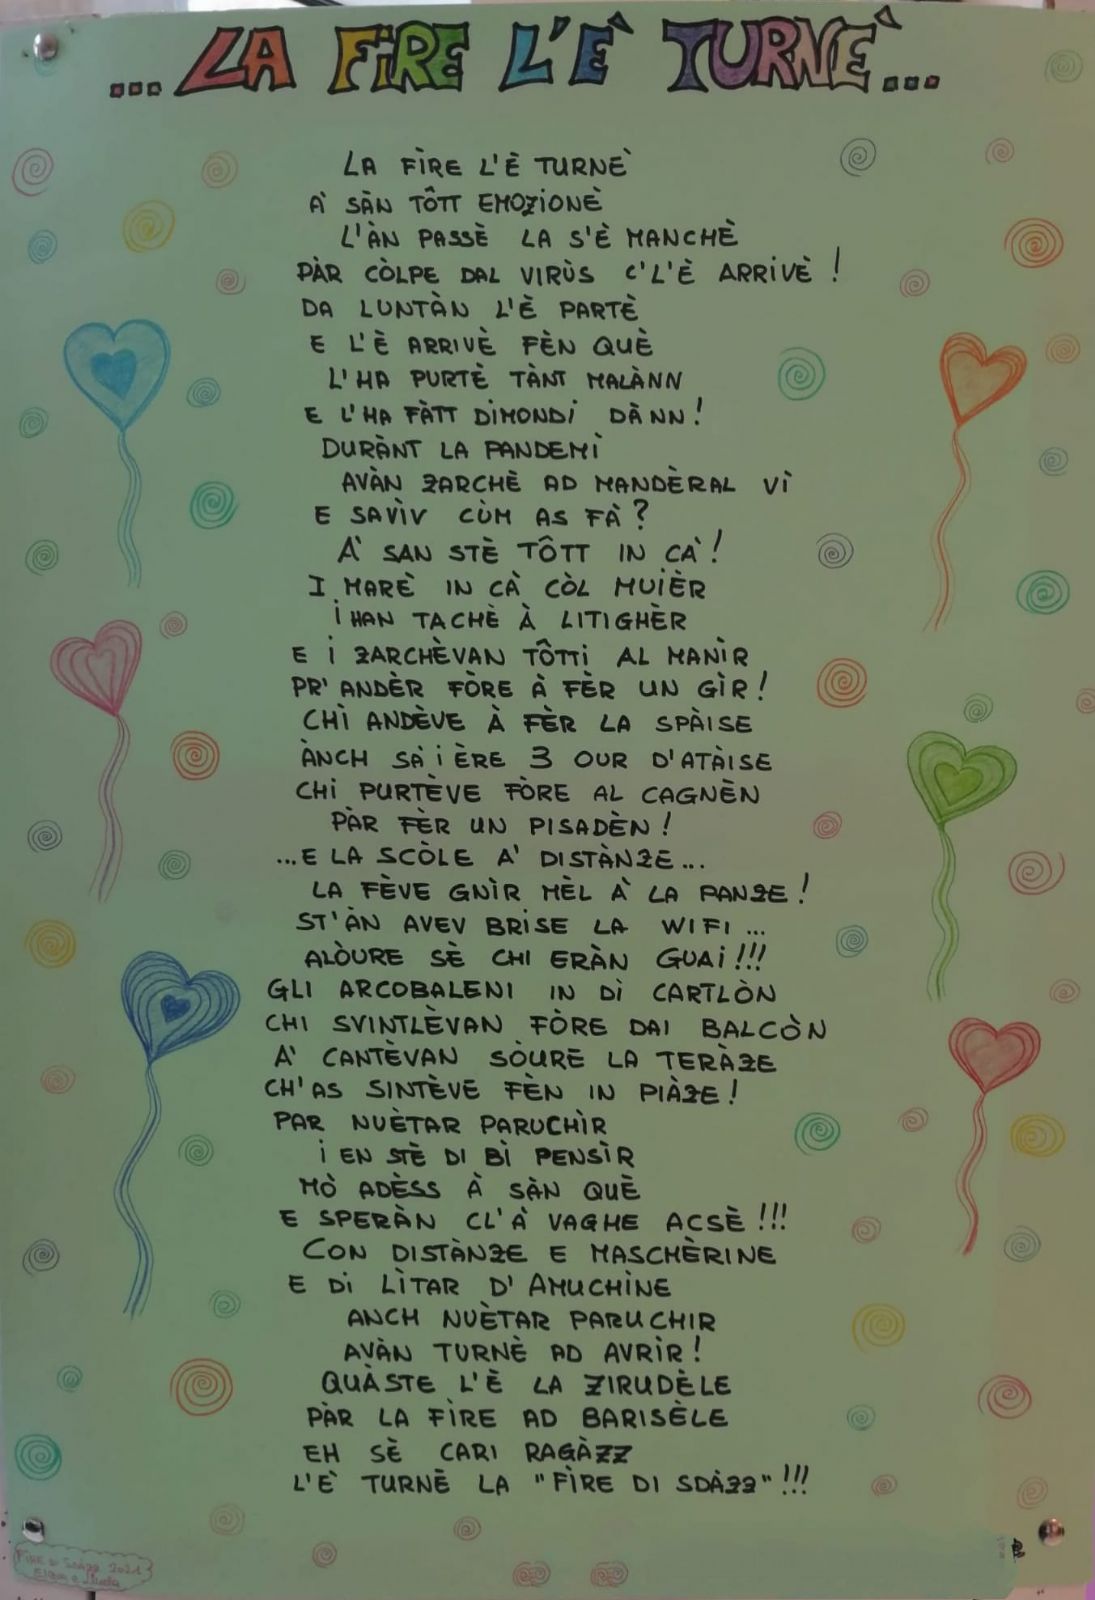 ...LA FIRE L'È TURNÈ...
LA FÌRE L'È TURNÈ
À SÀN TÔTT EMOZIONÈ
L'ÀN PASSÈ LA S'È MANCHÈ
PÀR CÒLPE DAL VIRÙS C'L'È ARRIVÈ!
DA LUNTÀN L'È PARTÈ
E L'È ARRIVÈ FÈN QUÈ
L'HA PURTÈ TÀNT MALÀNN
E L'HA FÀTT DIMONDI DÀNN!
DURÀNT LA PANDEMÌ
AVÀN ZARCHÈ AD MANDÈRAL VÌ
E SAVÌV CÙM AS FÀ?
À SAN STÈ TÔTT IN CÀ!
I MARÈ IN CÀ CÒL MUIÈR
I HAN TACHÈ À LITIGHÈR
E I ZARCHÈVAN TÔTTI AL MANÌR
PR'ANDÈR FÒRE À FÈR UN GÌR!
CHÌ ANDÈVE À FÈR LA SPÀISE
ÀNCH SÀ I ÈRE 3 OUR D'ATÀISE
CHI PURTÈVE FÒRE AL CAGNÈN
PÀR FÈR UN PISADÈN!
...E LA SCÒLE A' DISTÀNZE...
LA FÈVE GNÌR MÈL À LA PANZE!
ST'ÀN AVEV BRISE LA WIFI...
ALÒURE SÈ CHI ERÀN GUAI!!!
GLI ARCOBALENI IN DÌ CARTLÒN
CHI SVINTLÈVAN FÒRE DAI BALCÒN
A' CANTÈVAN SÒURE LA TERÀZE
CH'AS SINTÈVE FÈN IN PIÀZE!
PAR NUÈTAR PARUCHÌR
I EN STÈ DI BÌ PENSÌR
MÒ ADÈSS À SÀN QUÈ
E SPERÀN CL'À VAGHE ACSÈ!!!
CON DISTÀNZE E MASCHÈRINE
E DI LÌTAR D'AMUCHÌNE
ANCH NUÈTAR PARUCHIR
AVÀN TURNÈ AD AVRÌR!
QUÀSTE L'È LA ZIRUDÈLE
PÀR LA FÌRE AD BARISÈLE
EH SÈ CARI RAGÀZZ
L'È TURNÈ LA "FÌRE DI SDÀZZ"!!!
2021